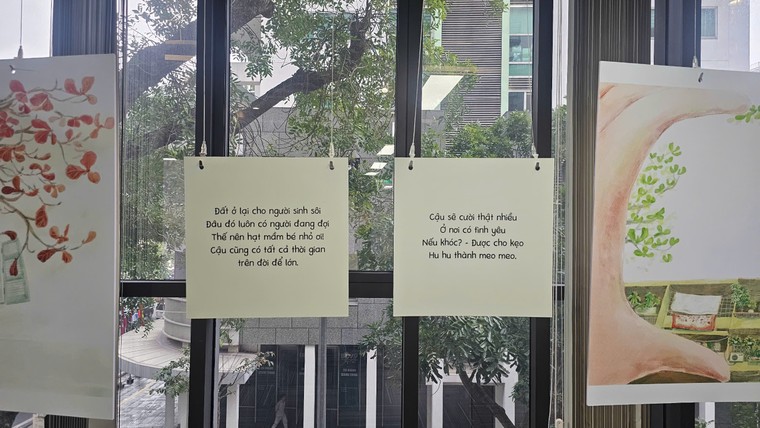 Đất ở lại cho người sinh sôi
Đâu đó luôn có người đang đợi
Thế nên hạt mầm bé nhỏ ơi!
Cậu cũng có tất cả thời gian
trên đời để lớn.
Cậu sẽ cười thật nhiều
Ở nơi có tình yêu
Nếu khóc? - Được cho kẹo
Hu hu thành meo meo.